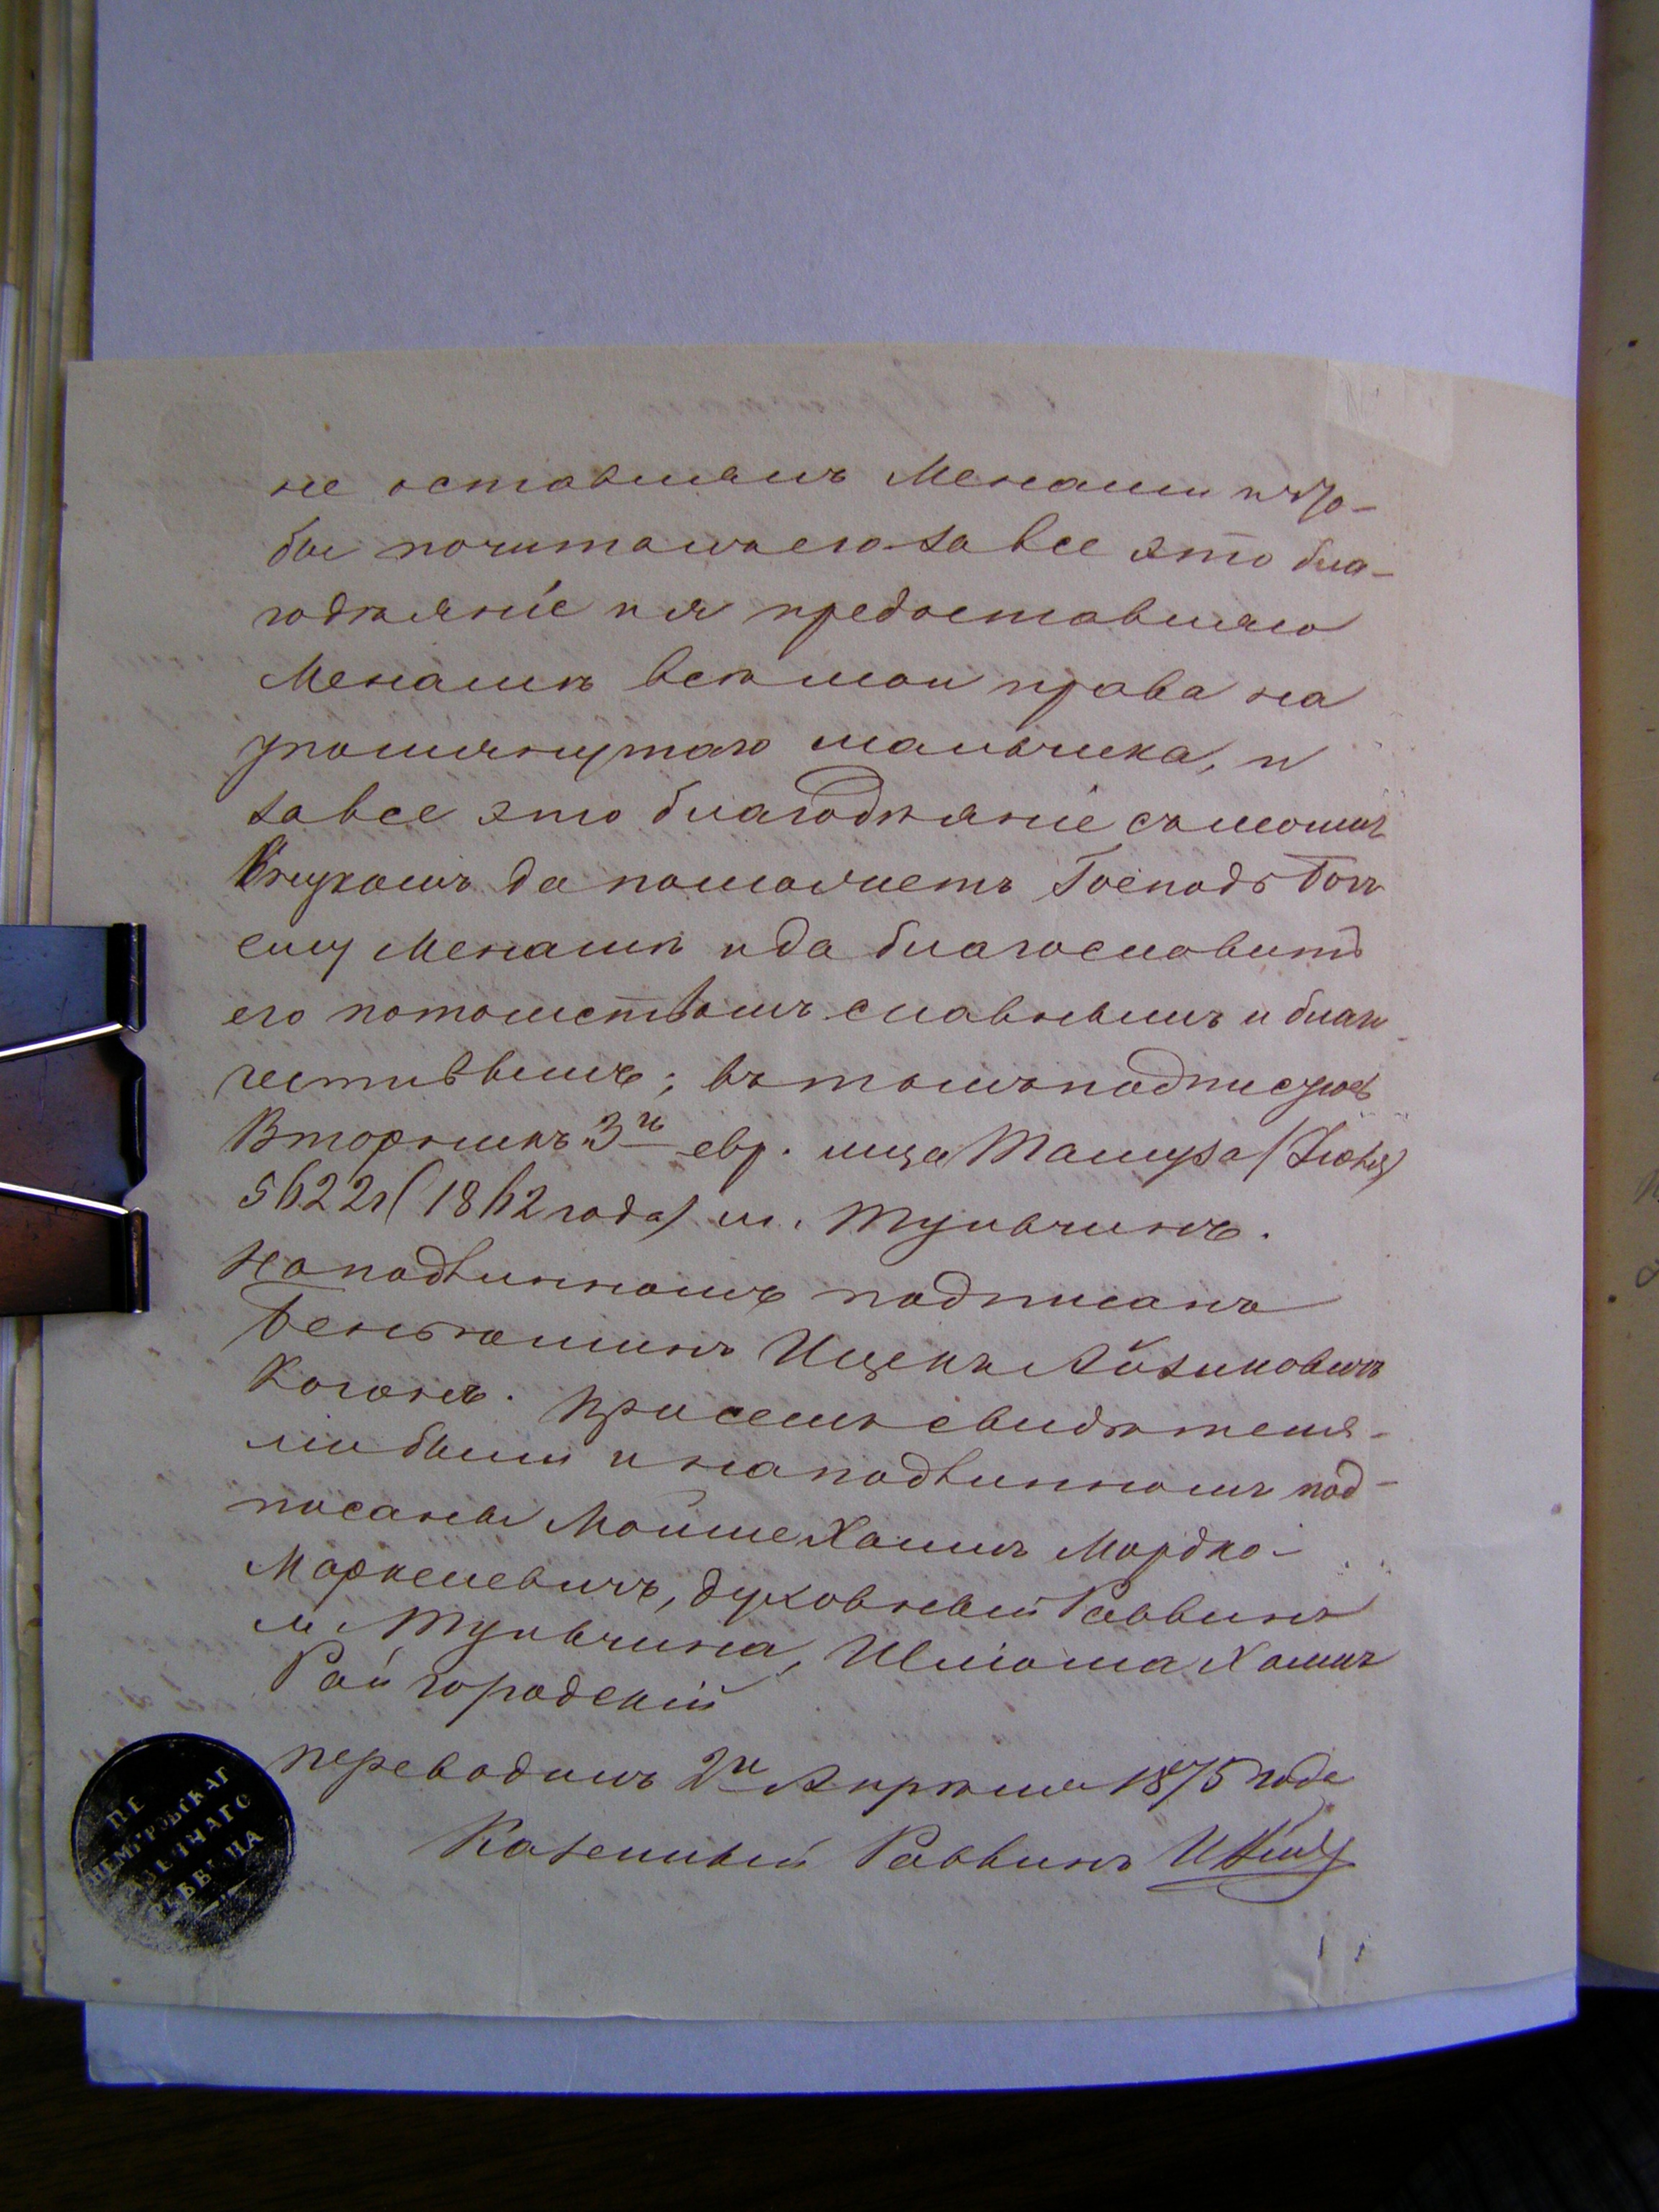 не оставлялъ Менаши и что-
бы почиталъ его за все это бла-
годѣяніе и я предоставляю
Менашѣ всѣ мои права на
упомянутаго мальчика, и
за все это благодѣяніе съ моимъ
Внукомъ да поможетъ Господь Богъ
ему Менашѣ и да благословитъ
его потомствомъ славнымъ и благо
честивымъ; въ томъ подписуюсь
Вторникъ 3го евр. мца Тамуза (Іюня)
5622г (1862 года) м. Тульчинъ.
На подлинномъ подписанъ
Беньяминъ Ицекъ Айзиковичъ
Коганъ. При семъ свидѣтеля-
ми были и на подлинномъ под-
писаны Мойше Хаимъ Мордко-
Маркелевичъ, духовный Раввинъ
м. Тульчина, Шліома Хаимъ
Райгородскій
Переводилъ 2го Апрѣля 1875 года
Казенный Раввинъ
НЕМИРОВСКАГ